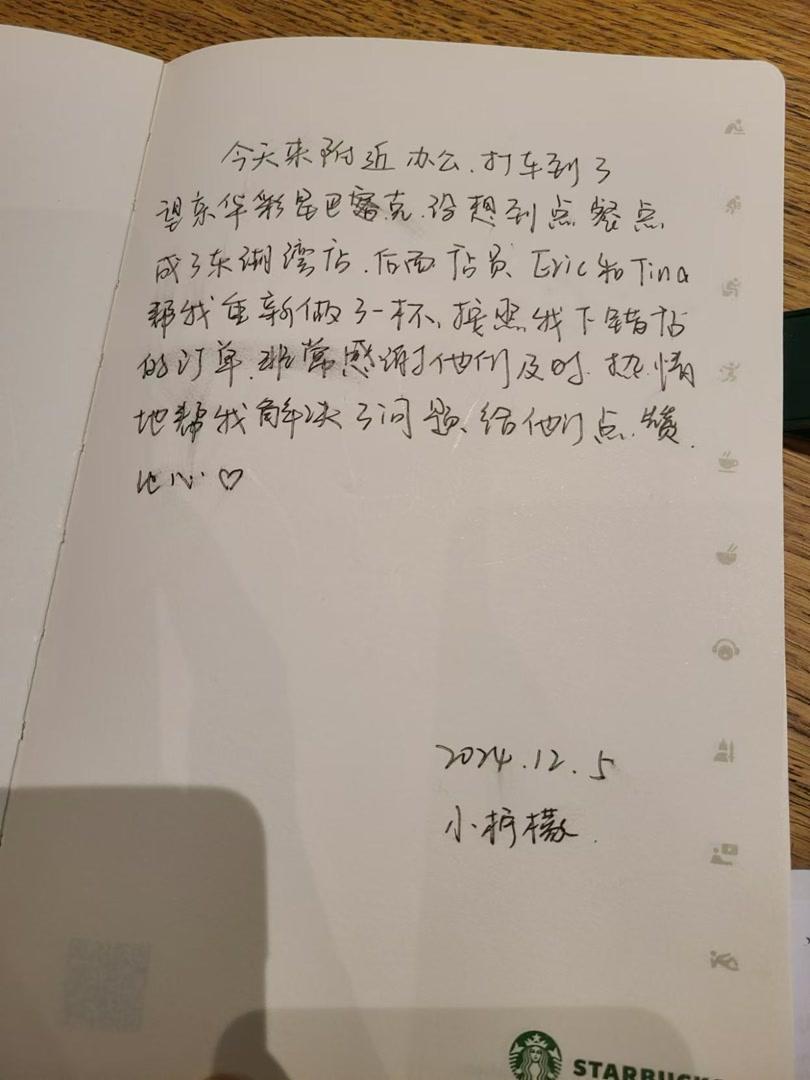 今天来附近办公.打车到了
望京华彩星巴客克.没想到点餐点
成了东湖湾店.后面店员 Eric和Tina
帮我重新做了一杯、按照我下错店
的订单.非常感谢他们及时.热情
地帮我解决了问题、给他们点赞.
比心♡
2024.12.5
小柠檬.
STARBUCKS